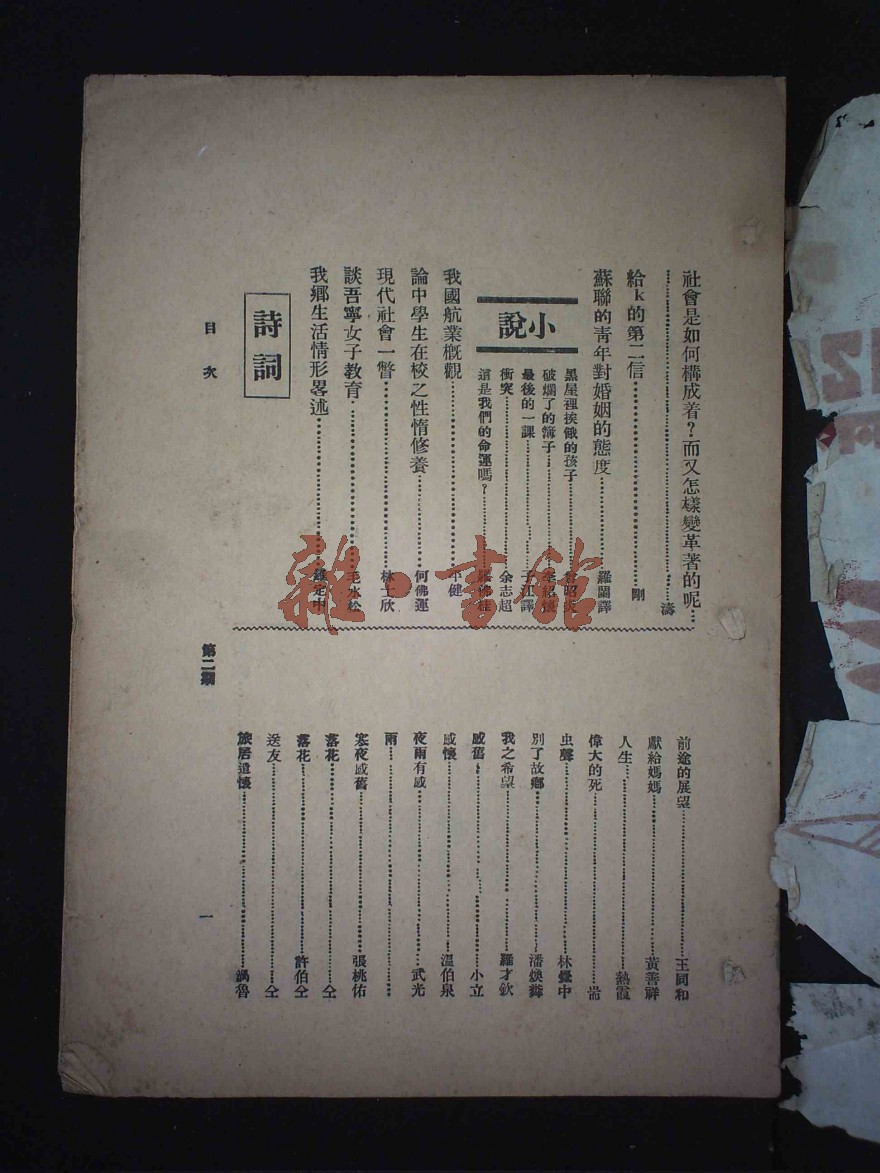 社會是如何構成着?而又怎樣變革著的呢…
………………………………濤
給k的第二信………………剛
蘇聯的青年對婚姻的態度………羅蘭譯
小說
黑屋裡挨餓的孩子………
破爛了的簿子………
最後的一課………子江譯
衝突………余志超
這是我們的命運嗎?………
我國航業概觀………健
論中學生在校之性情修養………何佛運
現代社會一瞥………林士欣
談吾寧女子教育………毛冰松
我鄉生活情形畧述………鍾定中
詩詞
前途的展望………王同和
獻給媽媽………黃善祥
人生………熱霞
偉大的死………
虫聲………林覺中
別了故鄉………潘煥
我之希望………羅才欽
感舊………小立
感懷………溫伯泉
夜雨有感………武光
雨………
寒夜感舊………張桃佑
落花………仝
落花………許伯仝
送友………仝
旅居遣懷………鍋魯
目次
第二期
一
雜·書館